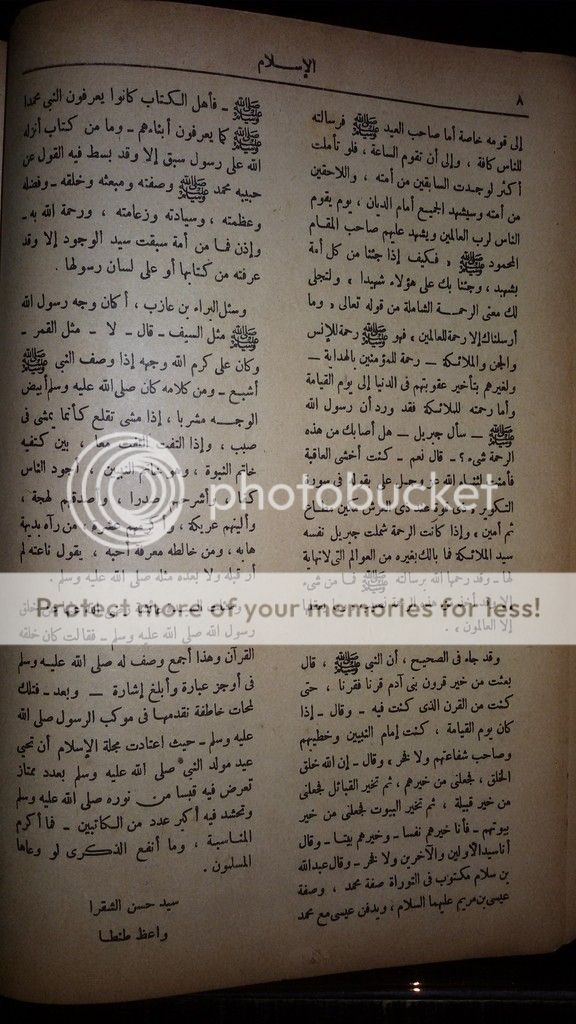 الإسلام
٨
إلى قومه خاصة أما صاحب العيد ﷺ فرسالته
للناس كافة ، وإلى أن تقوم الساعة ، فلو تأملت
أكثر لوجدت السابقين من أمته ، واللاحقين
من أمته وسيشهد الجميع أمام الديان ، يوم يقوم
الناس لرب العالمين ويشهد عليهم صاحب المقام
المحمود ﷺ « فكيف إذا جئنا من كل أمة
بشهيد ، وجئنا بك على هؤلاء شهيدا » ولتجلى
لك معنى الرحمة الشاملة من قوله تعالى « وما
أرسلناك إلا رحمة للعالمين » فهو ﷺ رحمة للإنس
والجن والملائكة — رحمة للمؤمنين بالهداية —
ولغيرهم بتأخير عقوبتهم فى الدنيا إلى يوم القيامة
وأما رحمته للملائكة فقد ورد أن رسول الله
ﷺ — سأل جبريل — هل أصابك من هذه
الرحمة شىء ؟ — قال نعم — كنت أخشى العاقبة
فأمنت لثناء الله عز وجل على بقوله فى سورة
التكوير « ذى قوة عند ذى العرش مكين مطاع
ثم أمين » وإذا كانت الرحمة شملت جبريل نفسه
سيد الملائكة فما بالك بغيره من العوالم التى لا نهاية
لها — وقد رحمها الله برسالته ﷺ فما من شىء
إلا العالمون » .
وقد جاء فى الصحيح ، أن النبي ﷺ ، قال
بعثت من خير قرون بنى آدم قرنا فقرنا ، حتى
كنت من القرن الذى كنت فيه — وقال — إذا
كان يوم القيامة ، كنت إمام النبيين وخطيبهم
وصاحب شفاعتهم ولا فخر » وقال — إن الله خلق
الخلق ، فجعلنى من خيرهم ، ثم تخير القبائل فجعلنى
من خير قبيلة ، ثم تخير البيوت فجعلنى من خير
بيوتهم — فأنا خيرهم نفسا — وخيرهم بيتا — وقال
أنا سيد الأولين والآخرين ولا فخر — وقال عبد الله
بن سلام مكتوب فى التوراة صفة محمد ، وصفة
عيسى بن مريم عليهما السلام ، ويدفن عيسى مع محمد
ﷺ — فأهل الكتاب كانوا يعرفون النبي محمدا
ﷺ كما يعرفون أبناءهم — وما من كتاب أنزله
الله على رسول سبق إلا وقد بسط فيه القول عن
حبيبه محمد ﷺ وصفته ومبعثه وخلقه — وفضله
وعظمته ، وسيادته وزعامته ، ورحمة الله به —
وإذن فما من أمة سبقت سيد الوجود إلا وقد
عرفته من كتابها أو على لسان رسولها .
وسئل البراء بن عازب ، أكان وجه رسول الله
ﷺ مثل السيف — قال — لا — مثل القمر —
وكان على كرم الله وجهه إذا وصف النبي ﷺ
أشبع — ومن كلامه كان صلى الله عليه وسلم أبيض
الوجه مشربا ، إذا مشى تقلع كأنما يمشى فى
صبب ، وإذا التفت التفت معا ، بين كتفيه
خاتم النبوة ، وهو خاتم النبيين ، أجود الناس
كفا ، وأشرحهم صدرا ، وأصدقهم لهجة ،
وألينهم عريكة ، وأكرمهم عشرة ، من رآه بديهة
هابه ، ومن خالطه معرفة أحبه ، يقول ناعته لم
أر قبله ولا بعده مثله صلى الله عليه وسلم .
رسول الله صلى الله عليه وسلم — فقالت كان خلقه
القرآن وهذا أجمع وصف له صلى الله عليه وسلم
فى أوجز عبارة وأبلغ إشارة — وبعد — فتلك
لمحات خاطفة نقدمها فى موكب الرسول صلى الله
عليه وسلم — حيث اعتادت مجلة الإسلام أن تحيى
عيد مولد النبي صلى الله عليه وسلم بعدد ممتاز
تعرض فيه قبسا من نوره صلى الله عليه وسلم
وتحشد فيه أكبر عدد من الكاتبين — فما أكرم
المناسبة ، وما أنفع الذكرى لو وعاها
المسلمون .
سيد حسن الشقرا
واعظ طنطا
photobucket
Protect more of your memories for less!